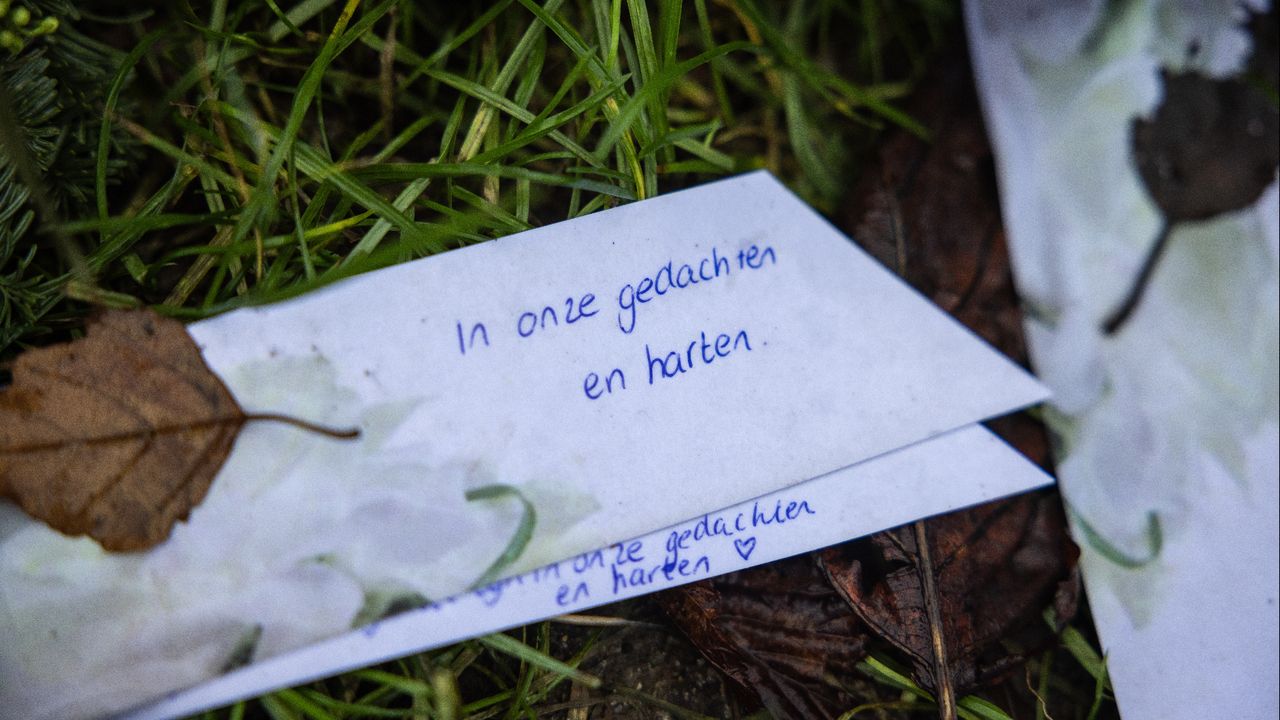 In onze gedachten
en harten.
in onze gedachten
en harten ♡